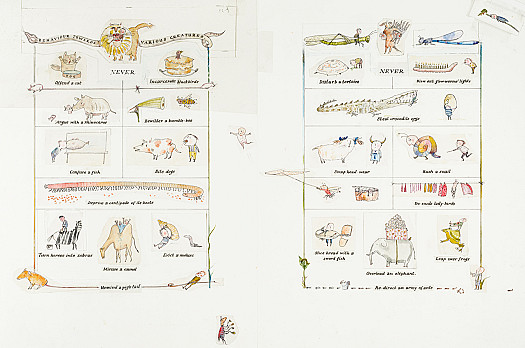 BEHAVIOUR TOWARDS VARIOUS CREATURES
NEVER
Offend a cat
Incarcerate blackbirds
Argue with a rhinoceros
Bewilder a bumble-bee
Confuse a fish
Bite dogs
Deprive a centipede of its boots
Turn horses into zebras
Misuse a camel
Evict a mouse
Unwind a pig's tail
NEVER
Disturb a tortoise
Blow out glowworms' lights
Steal crocodile eggs
head wear
Rush a snail
lady-birds
Slice bread with a
sword fish
Overload an elephant.
Leap over frogs
Re-direct an army of ants